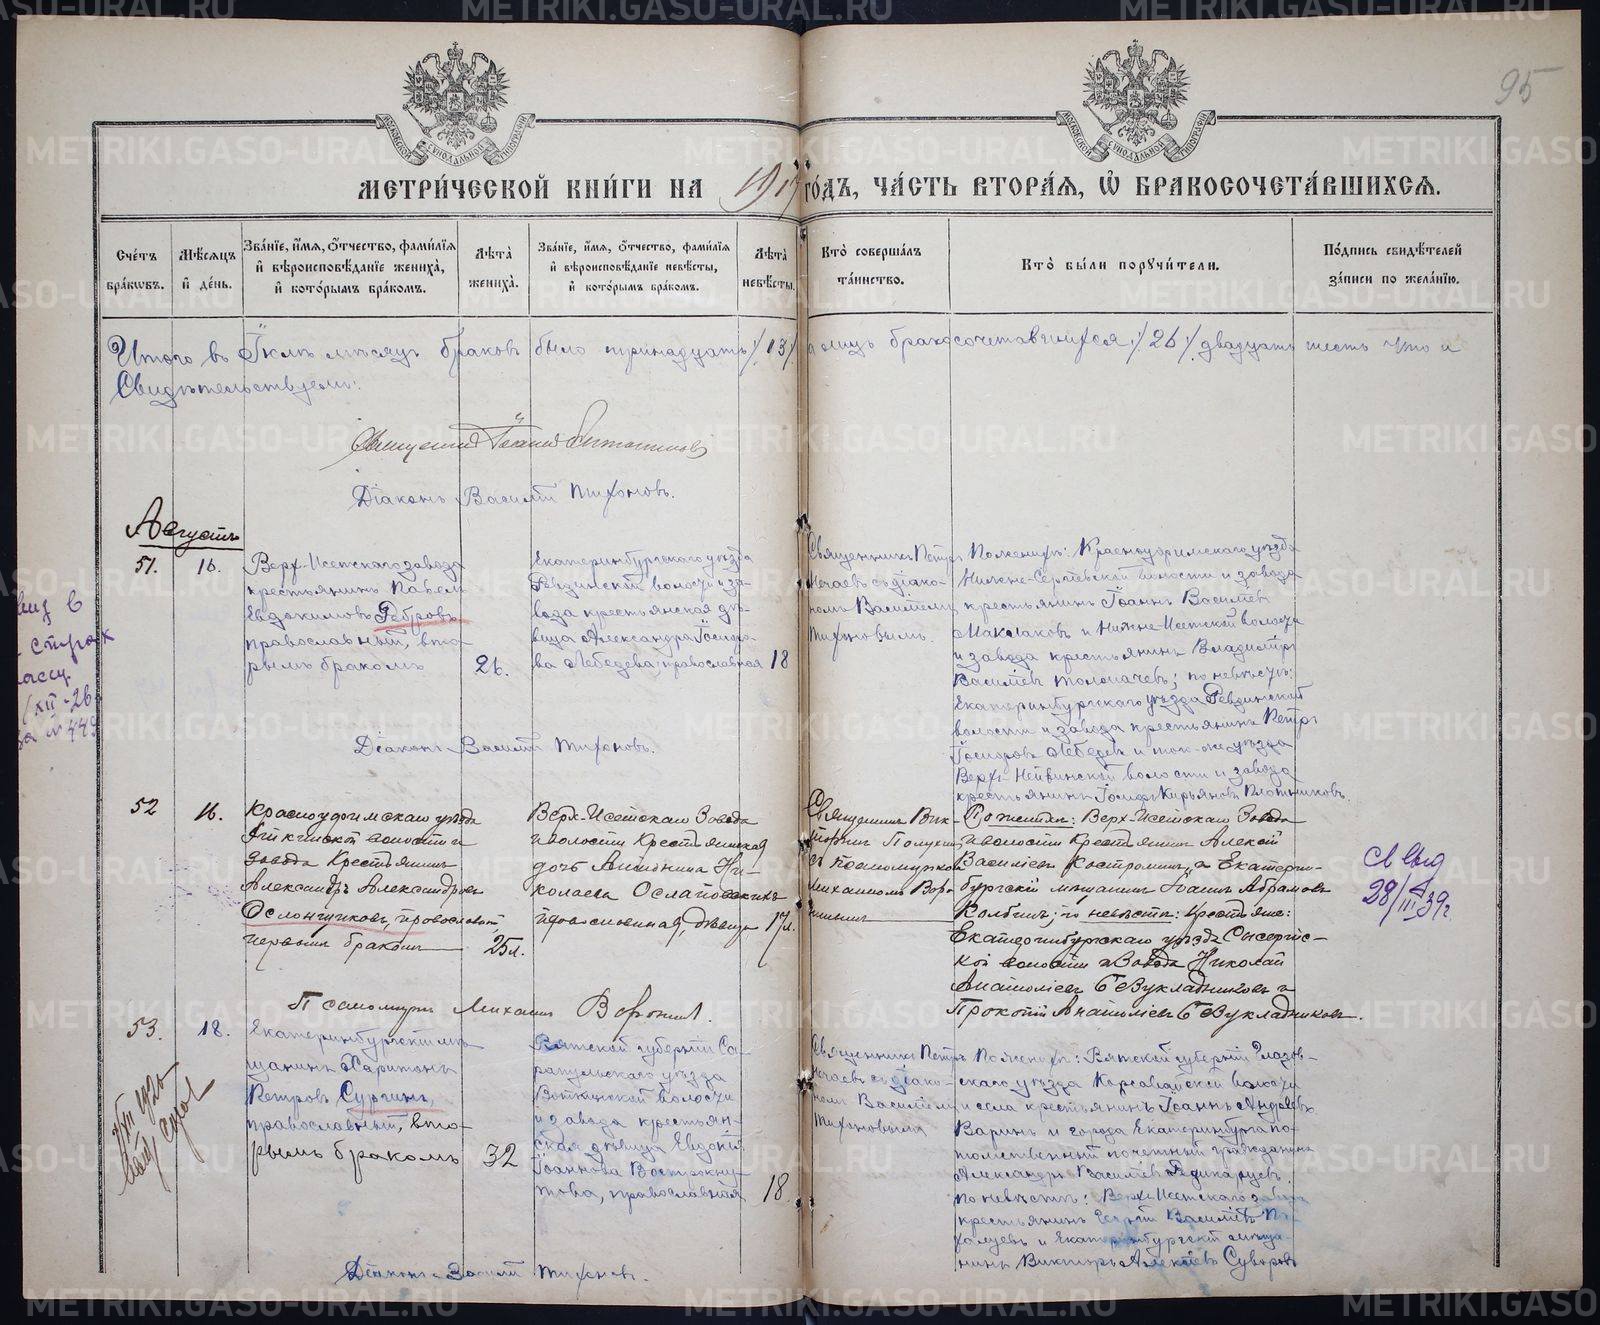 95
МЕТРИ́ЧЕСКОЙ КНИ́ГИ НА 1917 ГО́ДЪ, ЧА́СТЬ ВТОРА́Я, Ѡ҆ БРАКОСОЧЕТА́ВШИХСЯ.
Сче́тъ бра́кωвъ.
Мѣ́сяцъ и҆ де́нь.
Зва́нїе, и҆́мя, о҆́тчество, фами́лїя и҆ вѣроисповѣ́данїе жениха̀, и҆ кото́рымъ бра́комъ.
Лѣ́та жениха̀.
Зва́нїе, и҆́мя, о҆́тчество, фами́лїя и҆ вѣроисповѣ́данїе невѣ́сты, и҆ кото́рымъ бра́комъ.
Лѣ́та невѣ́сты.
Кто̀ соверша́лъ та́инство.
Кто̀ бы́ли поручи́тели.
По́дпись свидѣ́телей за́писи по жела́нїю.
Итого въ Іюлѣ мѣсяцѣ браковъ было тринадцать /13/ а лицъ бракосочетавшихся /26/ двадцать шесть что и
Свидѣтельствуемъ:
Священникъ Іоаннъ
Діаконъ Василій Тихоновъ.
Августъ
51.
16.
Верх-Исетскаго завода
крестьянинъ Павелъ
Евдокимовъ Ребровъ,
православный, вто-
рымъ бракомъ
26.
Екатеринбургскаго уѣзда
Ревдинской волости и за-
вода крестьянская дѣ-
вица Александра Ѳеодоро-
ва Лебедева, православная
18
Священникъ Петръ
Нечаевъ съ діако-
номъ Василіемъ
Тихоновымъ.
По женихѣ: Красноуфимскаго уѣзда
Нижне-Сергѣевской волости и завода
крестьянинъ Іоаннъ Василіевъ
и Нижне-Исетской волости
и завода крестьянинъ Владиміръ
Василіевъ Толмачевъ; по невѣстѣ:
Екатеринбургскаго уѣзда Ревдинской
волости и завода крестьянинъ Петръ
Ѳеодоровъ Лебедевъ и того-же уѣзда
Верхъ-Нейвинской волости и завода
крестьянинъ Іосифъ Кирьяновъ Плотниковъ.
Діаконъ Василій Тихоновъ.
52
16.
Красноуфимскаго уѣзда
волости и
завода Крестьянинъ
Александръ Александровъ
православный,
первымъ бракомъ
25 л.
Верх-Исетскаго Завода
и волости Крестьянская
дочь Антонина Ни-
колаева
православная, дѣвица
17 л.
Священникъ Вик-
торинъ
съ псаломщикомъ
Михаиломъ Воро-
нинымъ
По женихѣ: Верх-Исетскаго Завода
и волости Крестьянинъ Алексѣй
Василіевъ Костроминъ, а Екатерин-
бургскій мѣщанинъ Іоаннъ Абрамовъ
Колбинъ; по невѣстѣ: Крестьяне:
Екатеринбургскаго уѣзда Сысертс-
кой волости и Завода Николай
Анатоліевъ Вукладниковъ и
Прокопій Анатоліевъ Вукладниковъ.
Псаломщикъ Михаилъ Воронинъ.
53.
18.
Екатеринбургскій мѣ-
щанинъ Харитонъ
Петровъ Сургинъ,
православный, вто-
рымъ бракомъ
32
Вятской губерніи Са-
рапульскаго уѣзда
Воткинской волости
и завода крестьян-
ская дѣвица Евдокія
Іоаннова Вострокну-
това, православная
18.
Священникъ Петръ
Нечаевъ съ діако-
номъ Василіемъ
Тихоновымъ
По женихѣ: Вятской губерніи Глазов-
скаго уѣзда Карсовайской волости
и села крестьянинъ Іоаннъ Андреевъ
Варинъ и города Екатеринбурга по-
томственный почетный гражданинъ
Александръ Василіевъ
по невѣстѣ: Верх-Исетскаго завода
крестьянинъ Георгій Василіевъ
и Екатеринбургскій мѣща-
нинъ Викторъ Алексѣевъ Суворовъ
Діаконъ Василій Тихоновъ.
28/III 39 г
METRIKI.GASO-URAL.RU